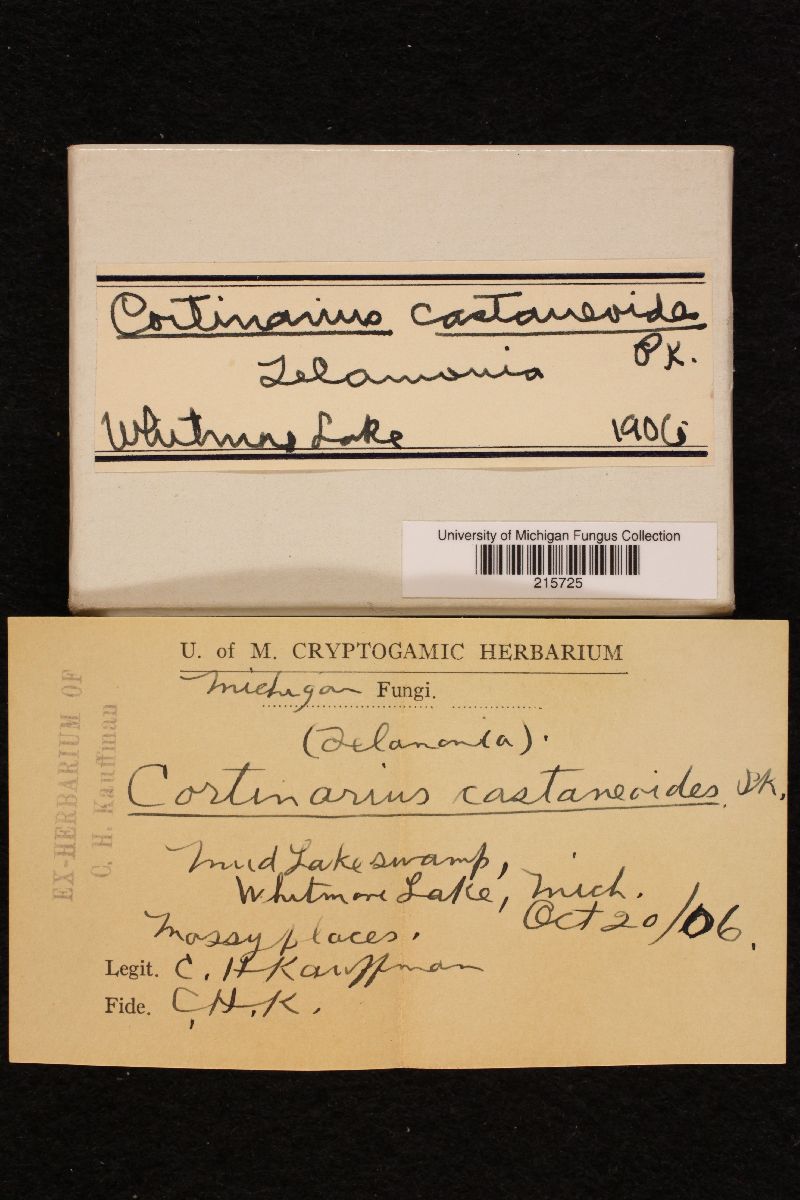 Cortinarius castaneoides
Pk.
Telamonia
Whitmore Lake 1906
University of Michigan Fungus Collection
215725
U. of M. CRYPTOGAMIC HERBARIUM
Michigan Fungi.
(Telamonia).
Cortinarius castaneoides. Pk.
Mud Lake swamp,
Whitmore Lake, Mich.
Oct 20/06.
Mossy places.
Legit. C. H Kauffman
Fide. C.H.K.
EX-HERBARIUM OF
C. H. Kauffman